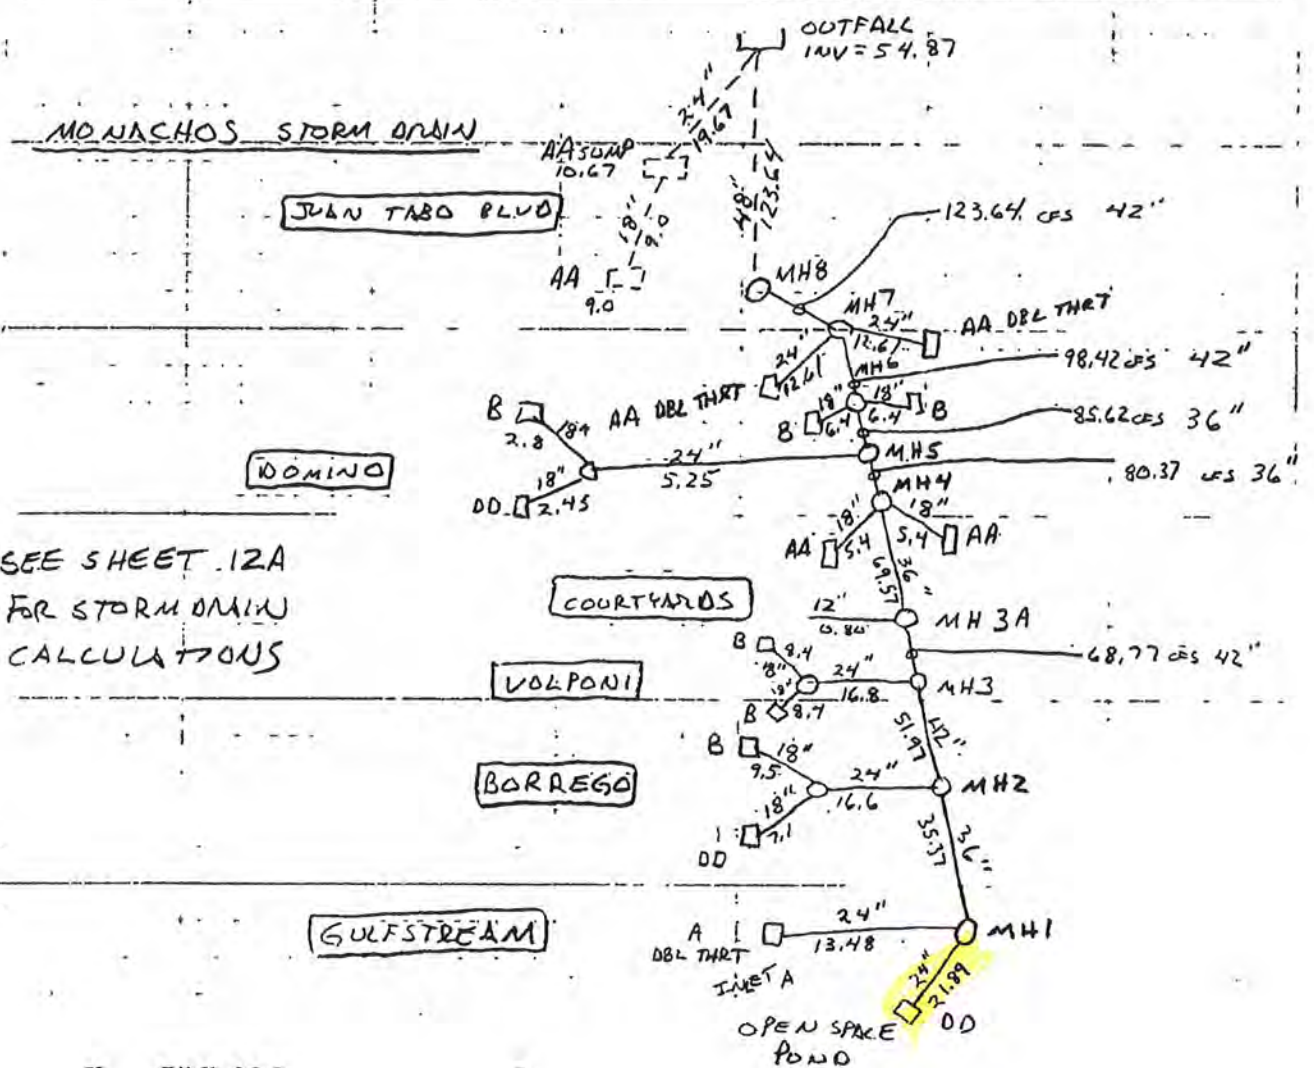 OUTFALL
INV = 54.87
MONACHOS STORM DRAIN
24"
19.67
AA SUMP
10.67
JUAN TABO BLVD
18"
9.0
48"
123.64
123.64 CFS 42"
AA
9.0
MH8
MH7
24"
12.61
AA DBL THRT
24"
12.61
MH6
98.42 CFS 42"
AA DBL THRT
B
2.8
18"
18"
6.4
B
18"
6.4
B
85.62 CFS 36"
MH5
DOMINO
24"
5.25
18"
DD 2.45
80.37 CFS 36"
MH4
18"
5.4
AA
18"
5.4
AA
SEE SHEET 12A
FOR STORM DRAIN
CALCULATIONS
36"
69.57
COURTYARDS
12"
0.80
MH 3A
B
8.4
18"
68.77 CFS 42"
VOLPONI
24"
16.8
MH3
18"
B 8.4
42"
51.97
B
18"
9.5
BORREGO
24"
16.6
MH2
18"
7.1
DD
36"
35.37
GULFSTREAM
A
DBL THRT
INLET A
24"
13.48
MH1
24"
21.89
DD
OPEN SPACE
POND